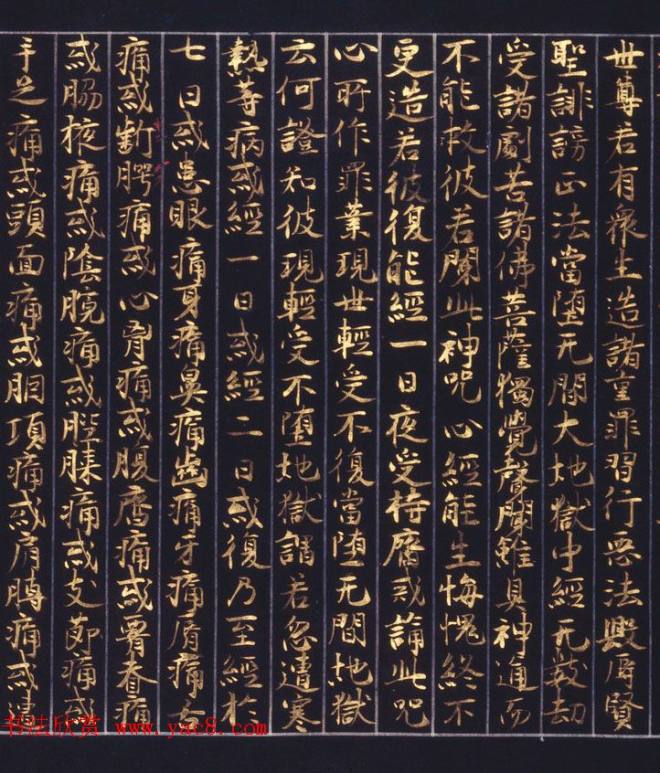 世尊若有眾生造諸重罪習行惡法毀辱賢
聖誹謗正法當墮无間大地獄中經无數劫
受諸劇苦諸佛菩薩獨覺聲聞雖具神通而
不能救彼若聞此神咒心經能生悔愧終不
更造若彼復能經一日夜受持齋戒誦此咒
心所作罪業現世輕受不復當墮无間地獄
云何證知彼現輕受不墮地獄謂若忽遭寒
熱等病或經一日或經二日或復乃至經於
七日或患眼痛耳痛鼻痛齒痛牙痛脣痛舌
痛或齗腭痛或心胷痛或腸齊痛或膂脊痛
或脇核痛或陰脫痛或䏶膝痛或支節痛或
手足痛或頭面痛或胭項痛或肩膊痛或
书法欣赏 www.yac8.com